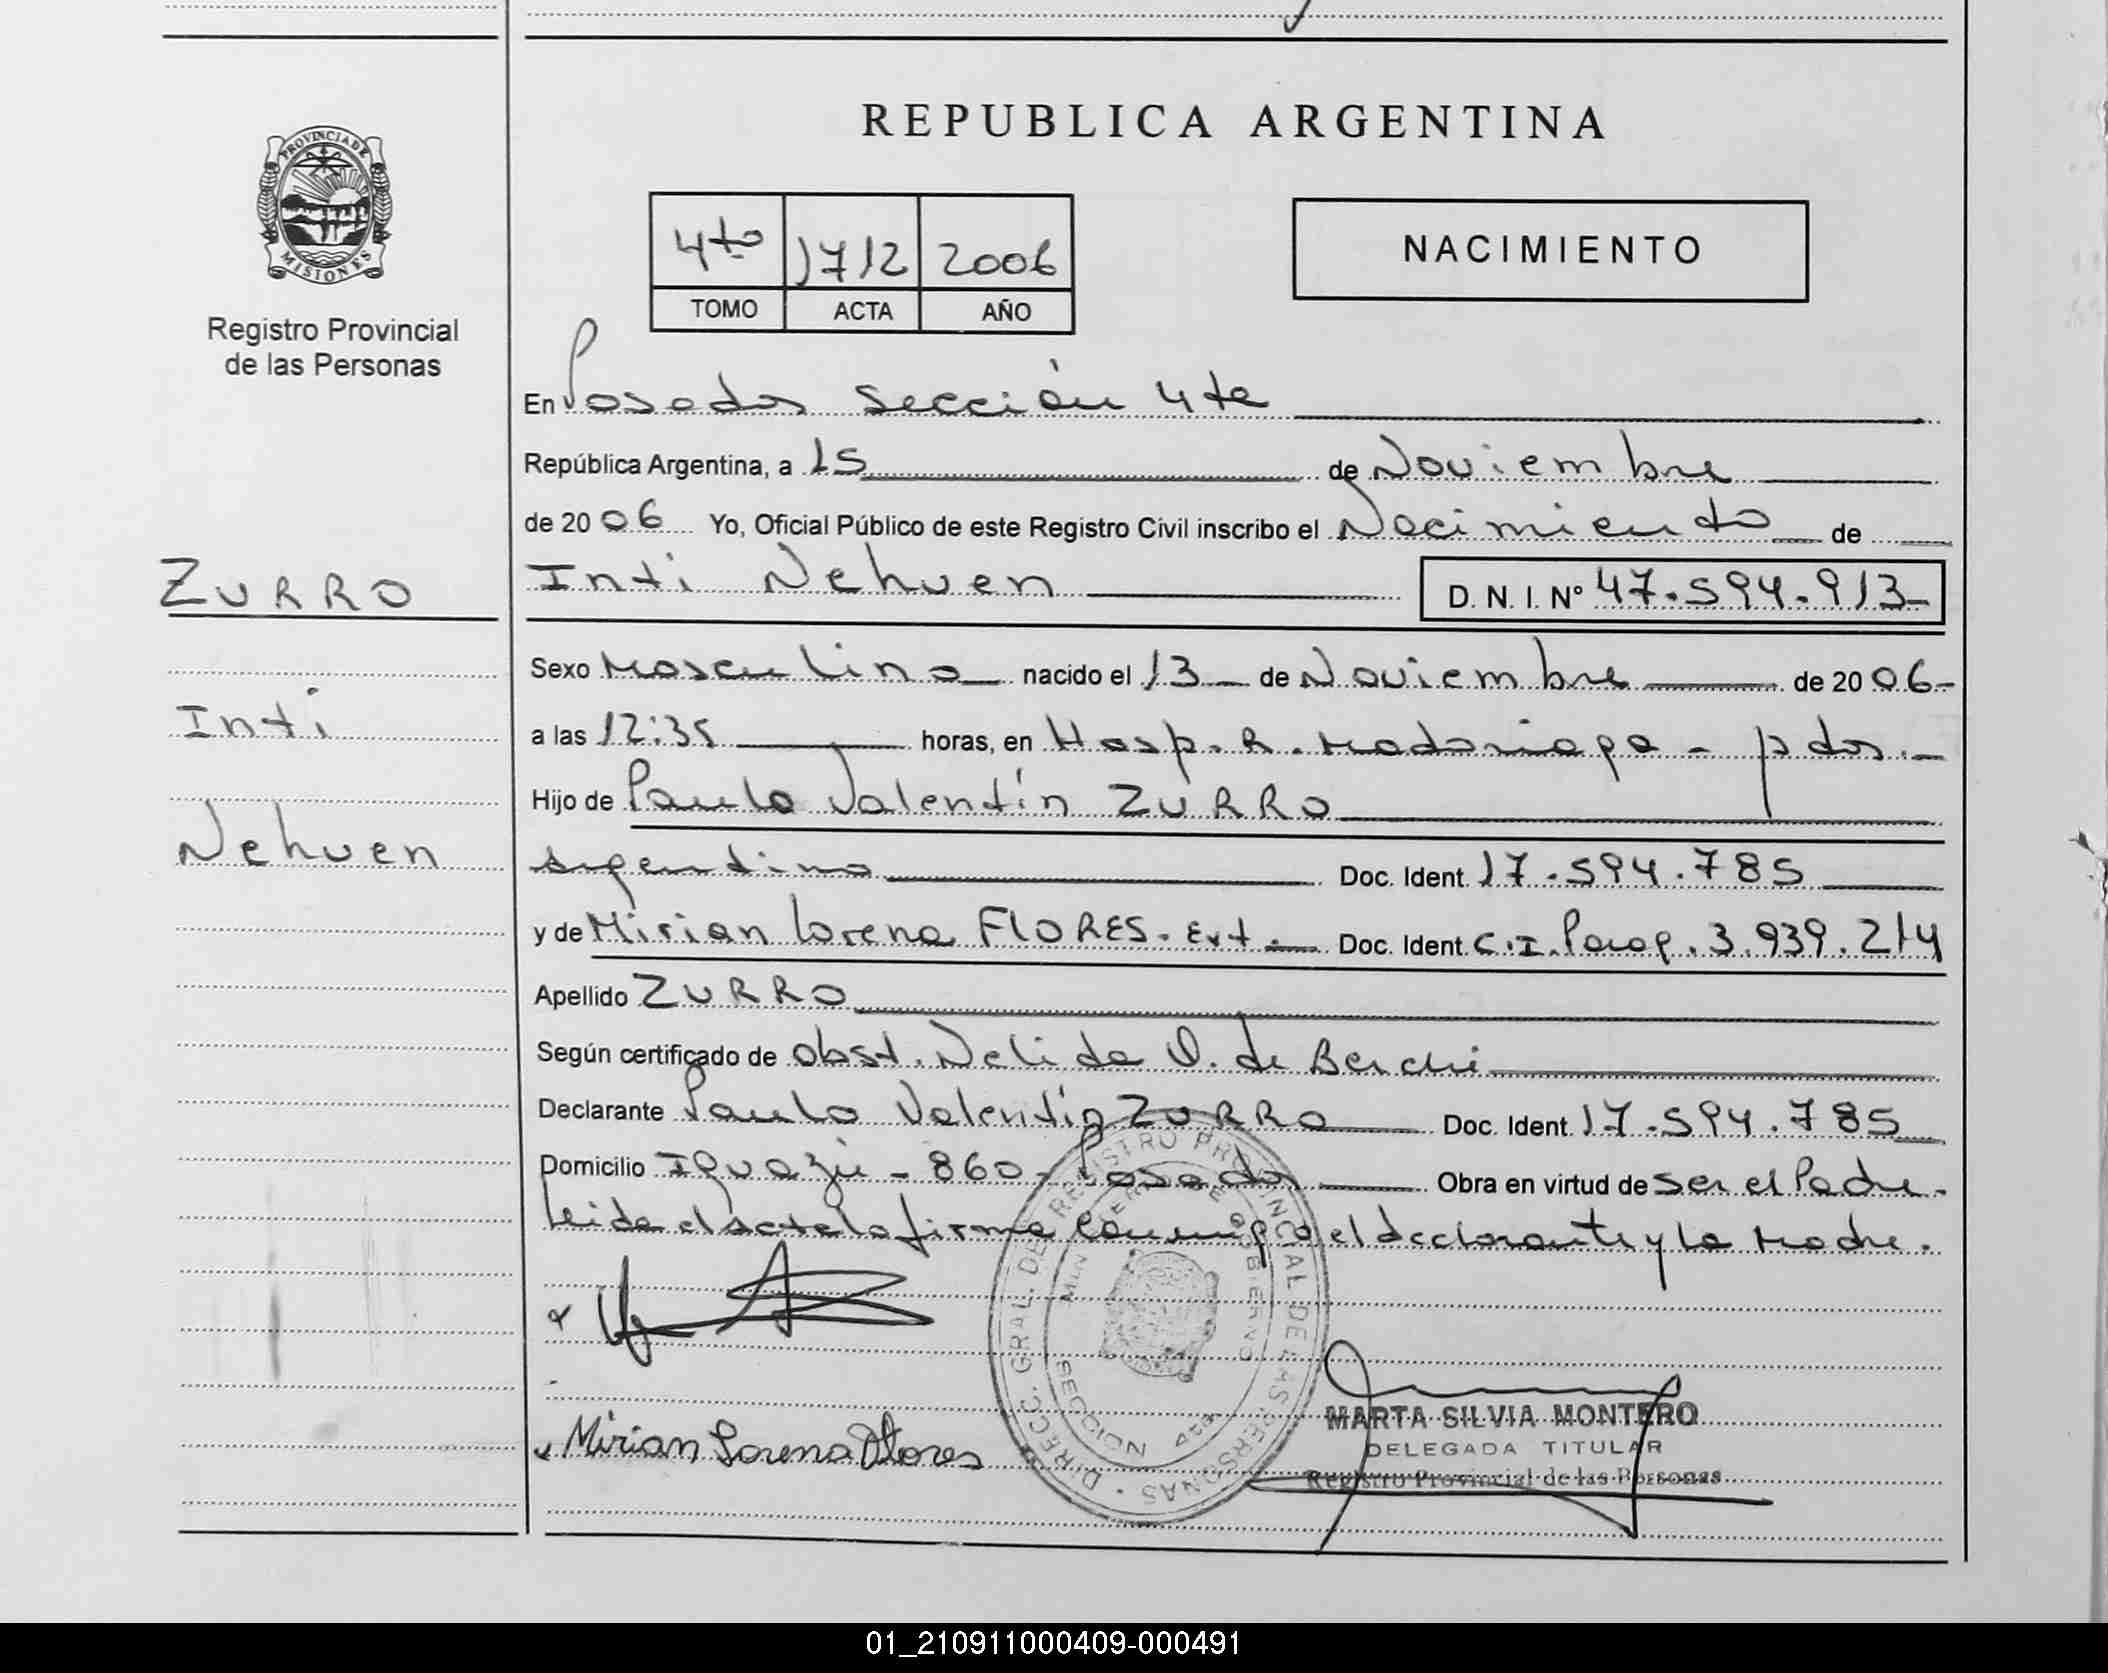 REPUBLICA ARGENTINA
PROVINCIA DE
MISIONES
Registro Provincial
de las Personas
4to 1712 2006
TOMO ACTA AÑO
NACIMIENTO
En Posadas sección 4ta
República Argentina, a 15 de Noviembre
de 2006 Yo, Oficial Público de este Registro Civil inscribo el Nacimiento de
ZURRO
Inti Nehuen D. N. I. Nº 47.594.913
Sexo Masculino nacido el 13 de Noviembre de 2006
Inti
a las 12:35 horas, en Hosp. R. Madariaga - pdas.
Hijo de Paulo Valentín ZURRO
Nehuen
argentino Doc. Ident. 17.594.785
y de Mirian Lorena FLORES. Ext. Doc. Ident. C.I. Parag. 3.939.214
Apellido ZURRO
Según certificado de Obst. Nelida O. de Berchi
Declarante Paulo Valentín ZURRO Doc. Ident. 17.594.785
Domicilio Iguazú - 860 - Posadas Obra en virtud de ser el Padre.
Leida el acta la firma conmigo el declarante y la Madre.
DIRECC. GRAL. DEL REGISTRO PROVINCIAL DE LAS PERSONAS
MINISTERIO DE GOBIERNO
SECCION 4ta
Mirian Lorena Flores
MARTA SILVIA MONTERO
DELEGADA TITULAR
Registro Provincial de las Personas
01_210911000409-000491